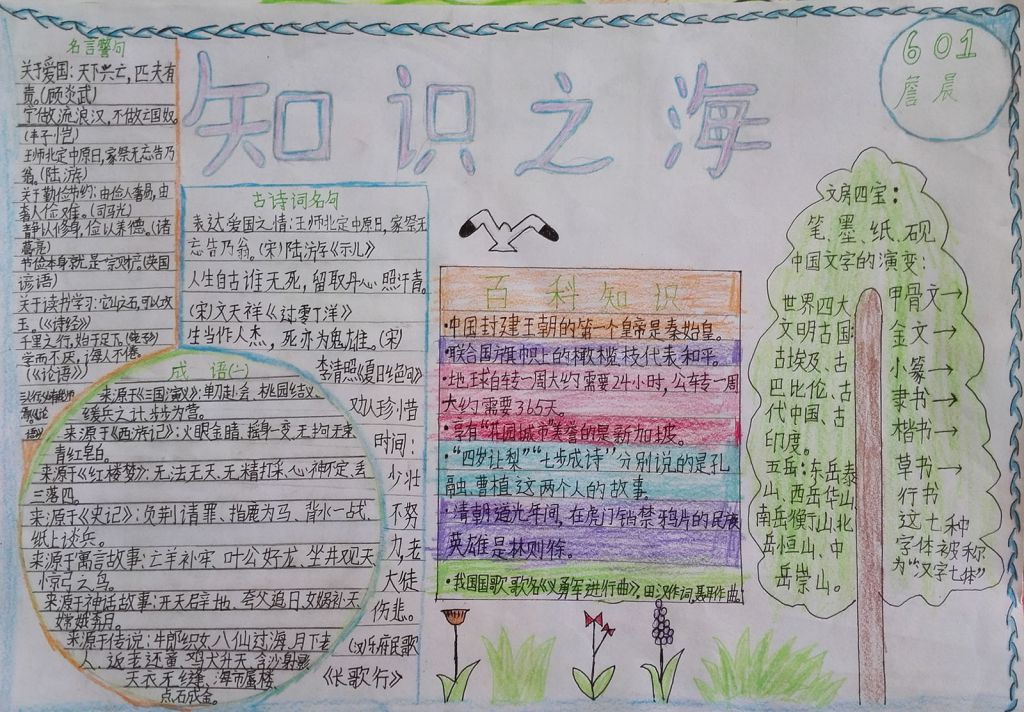 知识之海
601
詹晨
名言警句
关于爱国:天下兴亡,匹夫有
责。(顾炎武)
宁做流浪汉,不做亡国奴。
(丰子恺)
王师北定中原日,家祭无忘告乃
翁。(陆游)
关于勤俭节约:由俭入奢易,由
奢入俭难。(司马光)
静以修身,俭以养德。(诸
葛亮)
节俭本身就是一宗财产。(英国
谚语)
关于读书学习:它山之石,可以攻
玉。(《诗经》)
千里之行,始于足下。(老子)
学而不厌,诲人不倦。
(《论语》)
古诗词名句
表达爱国之情:王师北定中原日,家祭无
忘告乃翁。(宋)陆游《示儿》
人生自古谁无死,留取丹心照汗青。
(宋)文天祥《过零丁洋》
生当作人杰,死亦为鬼雄。(宋)
李清照《夏日绝句》
劝人珍惜
时间:
少壮
不努
力,老
大徒
伤悲。
(汉)乐府民歌
《长歌行》
成语(一)
来源于《三国演义》:单刀赴会、桃园结义、
缓兵之计、步步为营。
来源于《西游记》:火眼金睛、摇身一变、无拘无束、
青红皂白。
来源于《红楼梦》:无法无天、无精打采、心神不定、丢
三落四。
来源于《史记》:负荆请罪、指鹿为马、背水一战、
纸上谈兵。
来源于寓言故事:亡羊补牢、叶公好龙、坐井观天、
惊弓之鸟。
来源于神话故事:开天辟地、夸父追日、女娲补天、
嫦娥奔月。
来源于传说:牛郎织女、八仙过海、月下老
人、返老还童、鸡犬升天、含沙射影、
天衣无缝、海市蜃楼、
点石成金。
百科知识
·中国封建王朝的第一个皇帝是秦始皇。
·联合国旗帜上的橄榄枝代表和平。
·地球自转一周大约需要24小时,公转一周
大约需要365天。
·享有“花园城市”美誉的是新加坡。
·“四岁让梨”“七步成诗”分别说的是孔
融、曹植这两个人的故事。
·清朝道光年间,在虎门销禁鸦片的民族
英雄是林则徐。
·我国国歌歌名《义勇军进行曲》,田汉作词,聂耳作曲。
文房四宝:
笔、墨、纸、砚
中国文字的演变:
甲骨文→
金文→
小篆→
隶书→
楷书→
草书→
行书
这七种
字体被称
为“汉字七体”
世界四大
文明古国:
古埃及、古
巴比伦、古
代中国、古
印度。
五岳:东岳泰
山、西岳华山、
南岳衡山、北
岳恒山、中
岳嵩山。